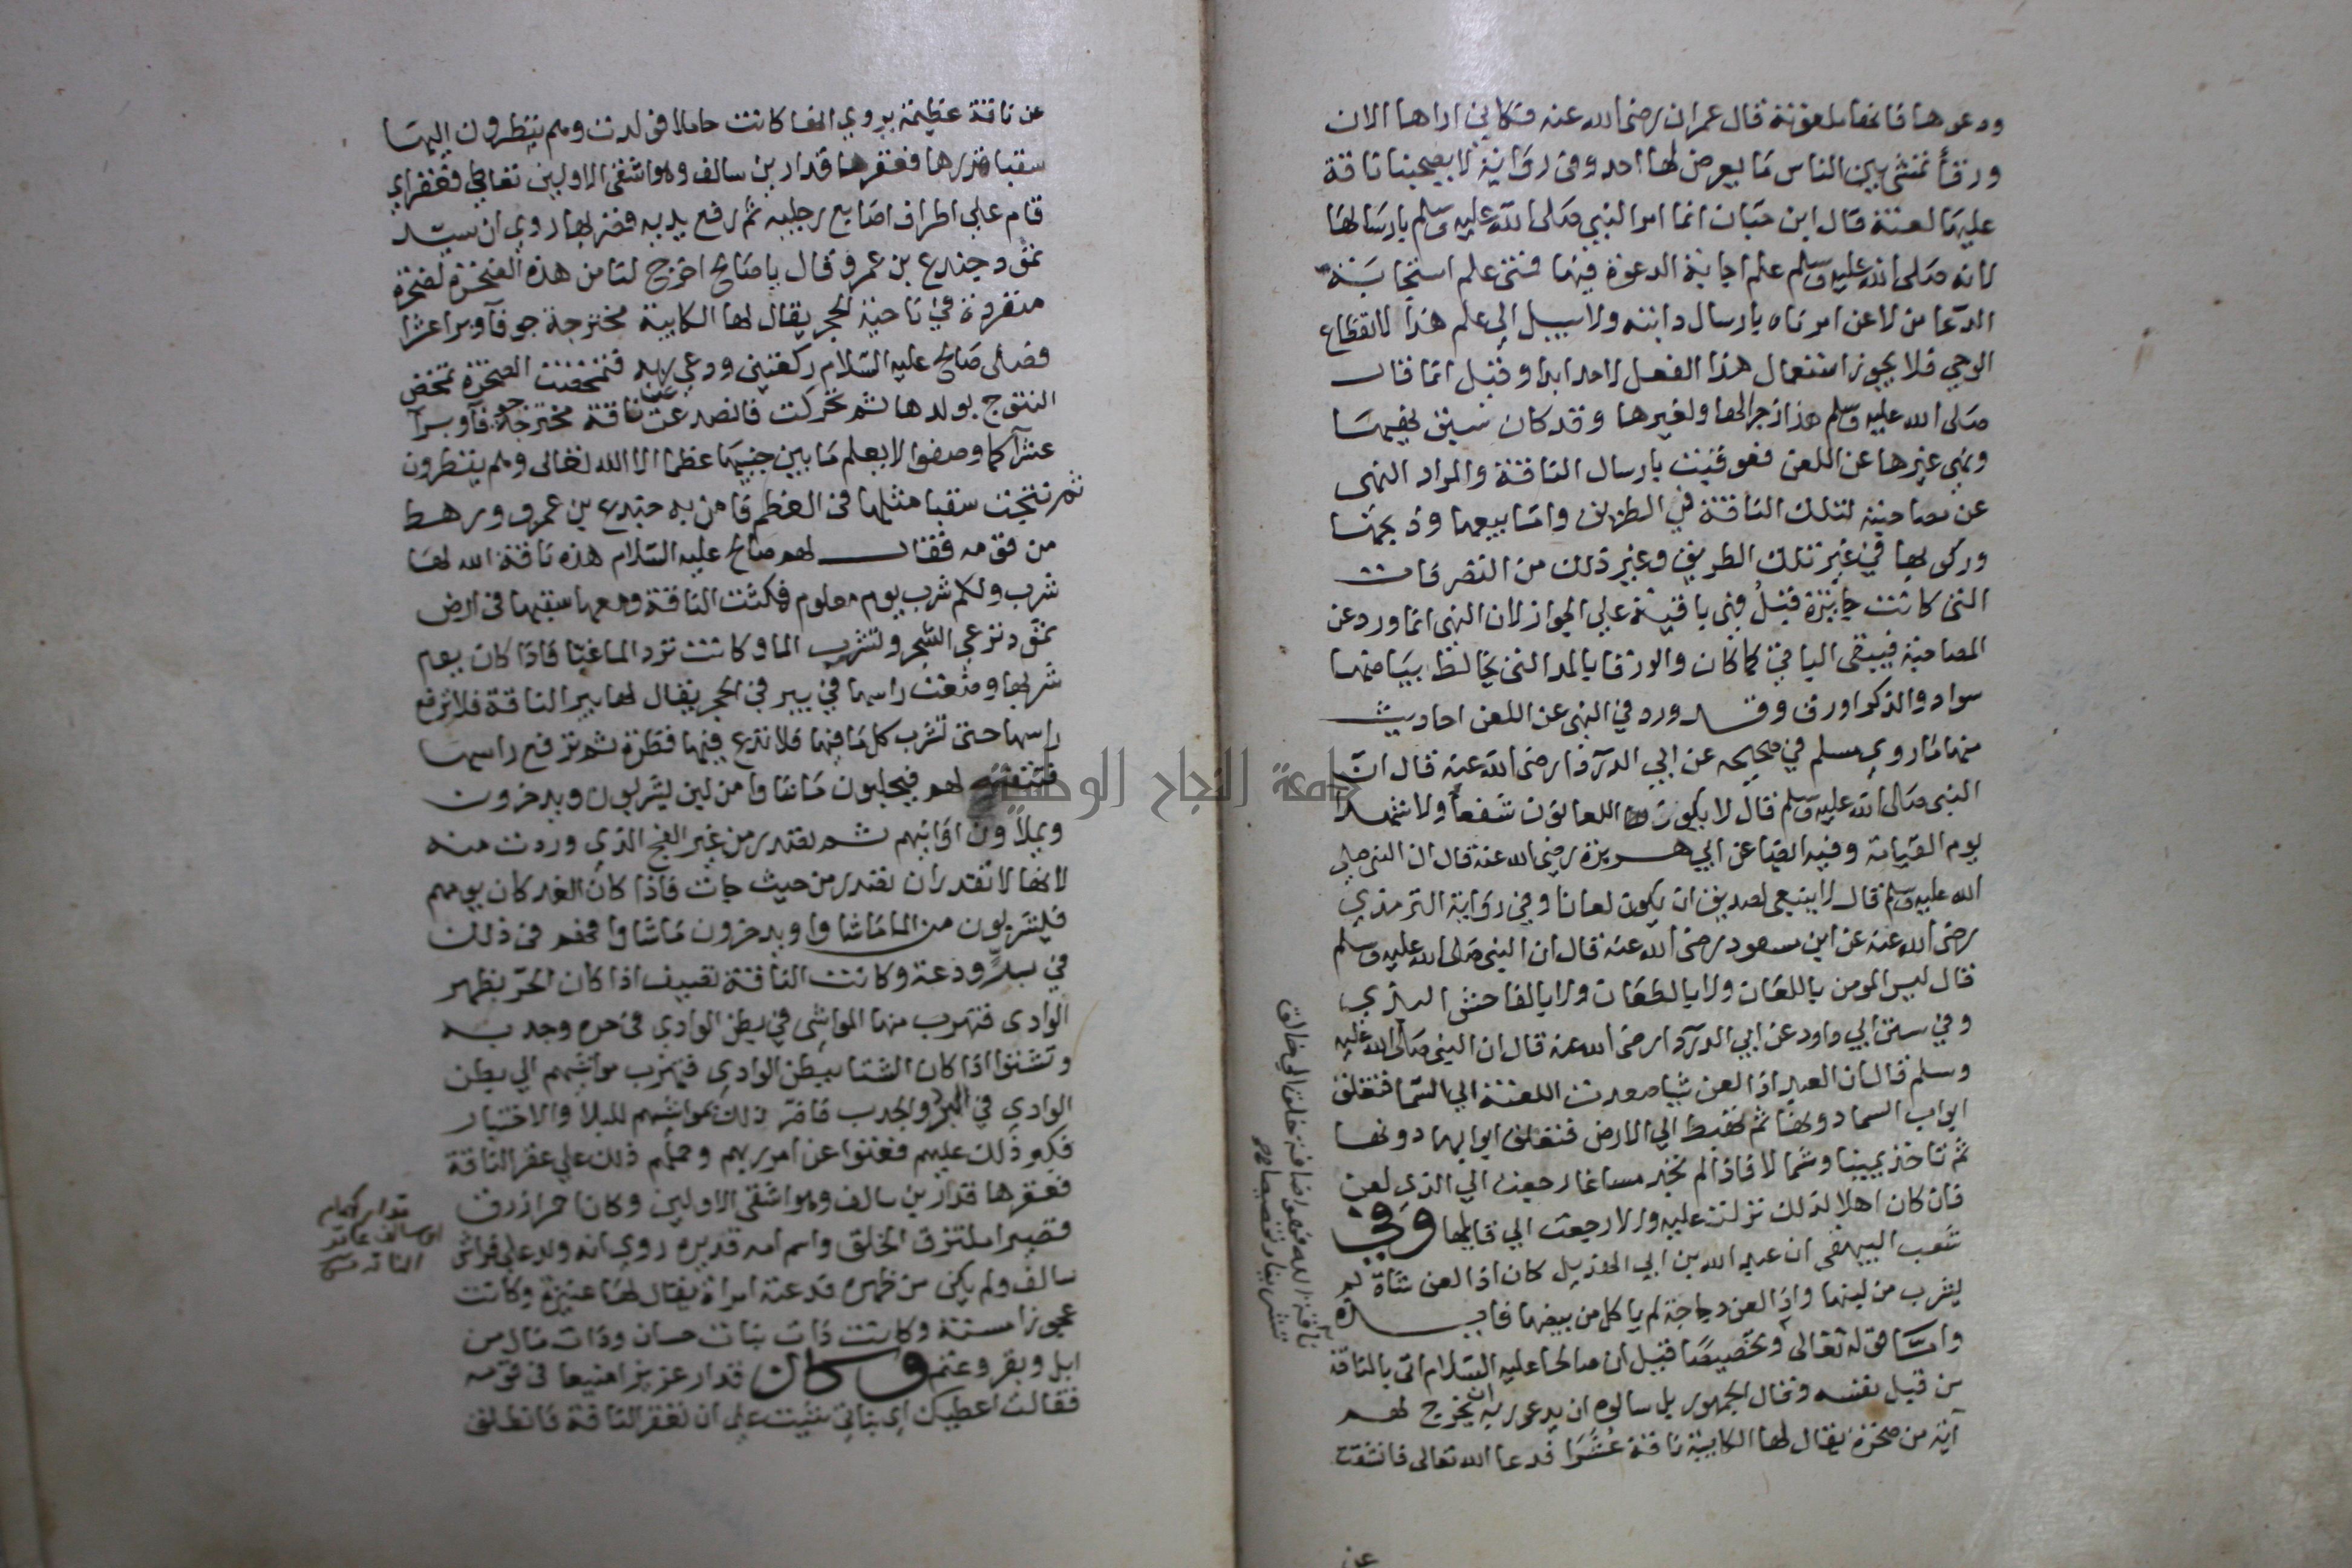 ودعوها فانها ملعونة قال عمران رضى الله عنه فكاني اراها الان
ورقأ تمشى بين الناس مَا يعرض لها احد وفى روَاية لا يصحبنا ناقة
عليهَا لعنة قال ابن حبان انما امر النبي صَلى الله عليه وَسلم بارسَالها
لانه صَلى الله عليه وَسلم علم اجابة الدعوة فيها فمتى علم استجابَة
الدّعا من لاعن امرناه بارسال دابته ولا سبيل الي علم هذا لانقطاع
الوحي فلا يجوز استعمال هذا الفعل لاحد ابدا وقيل انما قال
صَلى الله عليه وسلم هذا زجرا لها ولغيرها وقد كان سبق نهيهَا
ونهي غيرها عن اللعن فعوقبت بارسال الناقة والمراد النهى
عن مصاحبته لتلك الناقة في الطريق وامّا بيعها وذبحهَا
وركوبها في غير تلك الطريق وغير ذلك من التصرفات
التى كانت جايزة قبلُ فهى باقية علي الجواز لان النهى انما ورد عن
المصاحبة فيبقى الباقي كما كان والورقا بالمد التى يخالط بيَاضها
سواد والذكر اورق وقد ورد في النهى عن اللعن احاديث
منها مَا روي مسلم في صحيحه عن ابي الدرَدَا رضى الله عنه قال انّ
النبى صَلى الله عليه وسلم قال لا يكون اللعانون شفعاً ولا شهدا
يوم القيَامة وفيه ايضا عن ابي هريرة رضى الله عنه قال ان النبى صلى
الله عليه وسلم قال لا ينبغى لصديق ان يكون لعانا وفي روَاية الترمذي
رضى الله عنه عن ابن مسعود رضى الله عنه قال ان النبى صَلى الله عليه وسلم
قال ليس المومن باللعَان ولا بالطعَان ولا بالفاحش البذي
وفي سنن ابي داود عن ابي الدردَا رضى الله عنه قال ان النبى صَلى الله عليه
وسلم قال ان العبد اذا لعن شيا صعدت اللعنة الي السّما فتغلق
ابواب السما دونها ثم تهبط الي الارض فتغلق ابوابها دونها
ثم تاخذ يمينا وشمالا فاذا لم تجد مساغا رجعت الي الذى لعن
فان كان اهلا لذلك نزلت عليه والا رجعت الي قايلها وَفي
شعب البيهقى ان عبد الله بن ابي الهذيل كان اذا لعن شاة لم
يشرب من لبنها واذا لعن دجاجة لم ياكل من بيضها فايدة
وامّا قوله تعالى وتخصيصًا قيل ان صالحا عليه السّلام اتى بالناقة
من قبل نفسه وقال الجمهور بل سالوه ان يدعو ربه ان يخرج لهم
آية من صخرة يقال لها الكاتبة ناقة عُشَرَا فدعا الله تعالى فانشقت
عن
ناقة الله فهو اضافة خلق الي خالق
تشريفا وتخصيصا صح
عن ناقة عظيمة يروي انها كانت حاملا فولدت وهم ينظرون اليهَا
سقبا قدرها فعقرها قدار بن سالف وهو اشقى الاولين تعاطى فعقر اي
قام علي اطراف اصَابع رجليه ثم رفع يديه فضربها روي ان سيّد
ثمود جندع بن عمرو قال يا صَالح اخرج لنا من هذه الصخرة لصخرة
منفردة في ناحية الحجر يقال لها الكاتبة مخترجة جوفآ وبرا عشرا
فصَلى صَالح عليه السّلام ركعتين ودعى ربه فتمخضت الصخرة تمخض
النتوج بولدها ثم تحركت فانصدعت عن ناقة مخترجة جوفآ وبرآ
عشرآ كما وصفوا لا يعلم مَا بين جنبيهَا عظما الا الله تعالى وهم ينظرون
ثم نتجت سقبا مثلها فى العظم فامن به جندع بن عمرو ورهط
من قومه فقال لهم صالح عليه السّلام هذه ناقة الله لها
شرب ولكم شرب يوم معلوم فمكثت الناقة ومعها سقبها فى ارض
ثمود ترعي الشجر وتشرب الما وكانت ترد الما غبّا فاذا كان يوم
شربها وضعت راسها في بير فى الحجر يقال لها بير الناقة فلا ترفع
راسها حتى تشرب كل مَا فيها فلا تدع فيها قطرة ثم ترفع راسها
لهم فيحلبون مَا شاوا من لبن ليشربون ويدخرون
ويملاون اوَانيهم ثم تصدر من غير الفج الذي وردت منه
لانها لا تقدر ان تصدر من حيث جات فاذا كان الغد كان يومهم
فيشربون من الما مَا شاوا ويدخرون مَا شاوا فهم فى ذلك
في سعة ودعة وكانت الناقة تصيف اذا كان الحرّ بظهر
الوادى فتهرب منها المواشى في بطن الوادي فى حره وجدبه
وتشتوا اذا كان الشتا ببطن الوادي فتهرب مواشيهم الي بطن
الوادي في البرد والجدب فاضرّ ذلك بمواشيهم للبلا والاختبار
فكبر ذلك عليهم فعتوا عن امر ربهم وحملهم ذلك علي عقر الناقة
فعقرها قدار بن سالف وهو اشقى الاولين وكان احمر ازرق
قصيرا ملتزق الخلق واسم امه قديره روي انه ولد علي فراش
سالف ولم يكن من ظهره فدعته امراة يقال لهَا عنيزة وكانت
عجوزا مسنة وكانت ذات بنات حسان وذات مَال من
ابل وبقر وغنم وكان قدار عزيزا منيعا فى قومه
فقالت اعطيك اي بناتي شئت علي ان تعقر الناقة فانطلق
قدار كهمام
ابن سالف عاقر
الناقه
جامعة النجاح الوطنية